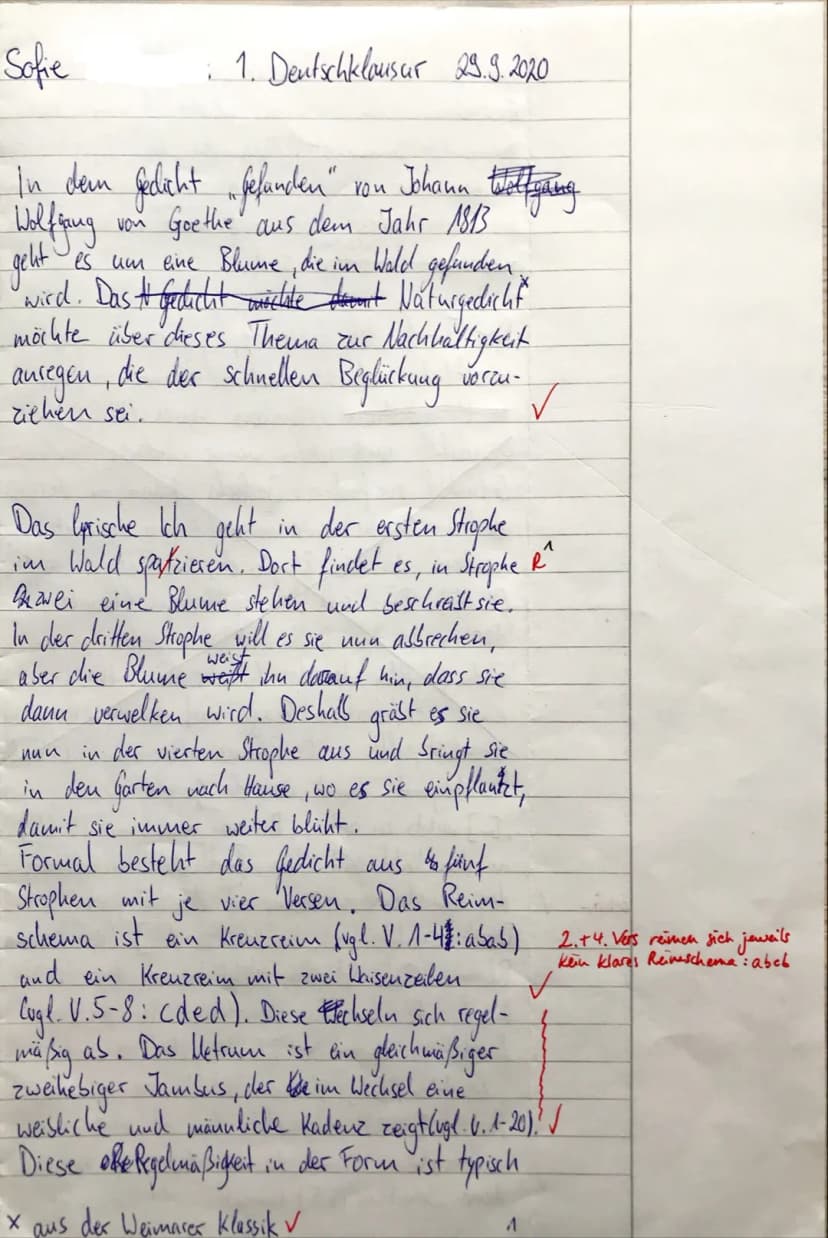 Sofie : 1. Deutschklausur 29.9.2020
In dem Gedicht „Gefunden" von Johann Wolfgang
Wolfgang von Goethe aus dem Jahr 1813
geht es um eine Blume, die im Wald gefunden
wird. Das Gedicht möchte damit Naturgedicht x
möchte über dieses Thema zur Nachhaltigkeit
anregen, die der schnellen Beglückung vorzu-
ziehen sei. ✓
Das lyrische Ich geht in der ersten Strophe
im Wald spatzieren. Dort findet es, in Strophe R ^
zwei eine Blume stehen und beschreibt sie.
In der dritten Strophe will es sie nun abbrechen,
aber die Blume weist ihn darauf hin, dass sie
dann verwelken wird. Deshalb gräbt es sie
nun in der vierten Strophe aus und bringt sie
in den Garten nach Hause, wo es sie einpflantzt,
damit sie immer weiter blüht.
Formal besteht das Gedicht aus fünf
Strophen mit je vier Versen. Das Reim-
schema ist ein Kreuzreim (vgl. V. 1-4: abab) 2.+4. Vers reimen sich jeweils
und ein Kreuzreim mit zwei Waisenzeilen kein klares Reimschema: abcb
(vgl. V. 5-8: cded). Diese wechseln sich regel- ✓
mäßig ab. Das Metrum ist ein gleichmäßiger
zweihebiger Jambus, der im Wechsel eine
weibliche und männliche Kadenz zeigt (vgl. V. 1-20). ✓
Diese Regelmäßigkeit in der Form ist typisch
x aus der Weimarer Klassik ✓ 1